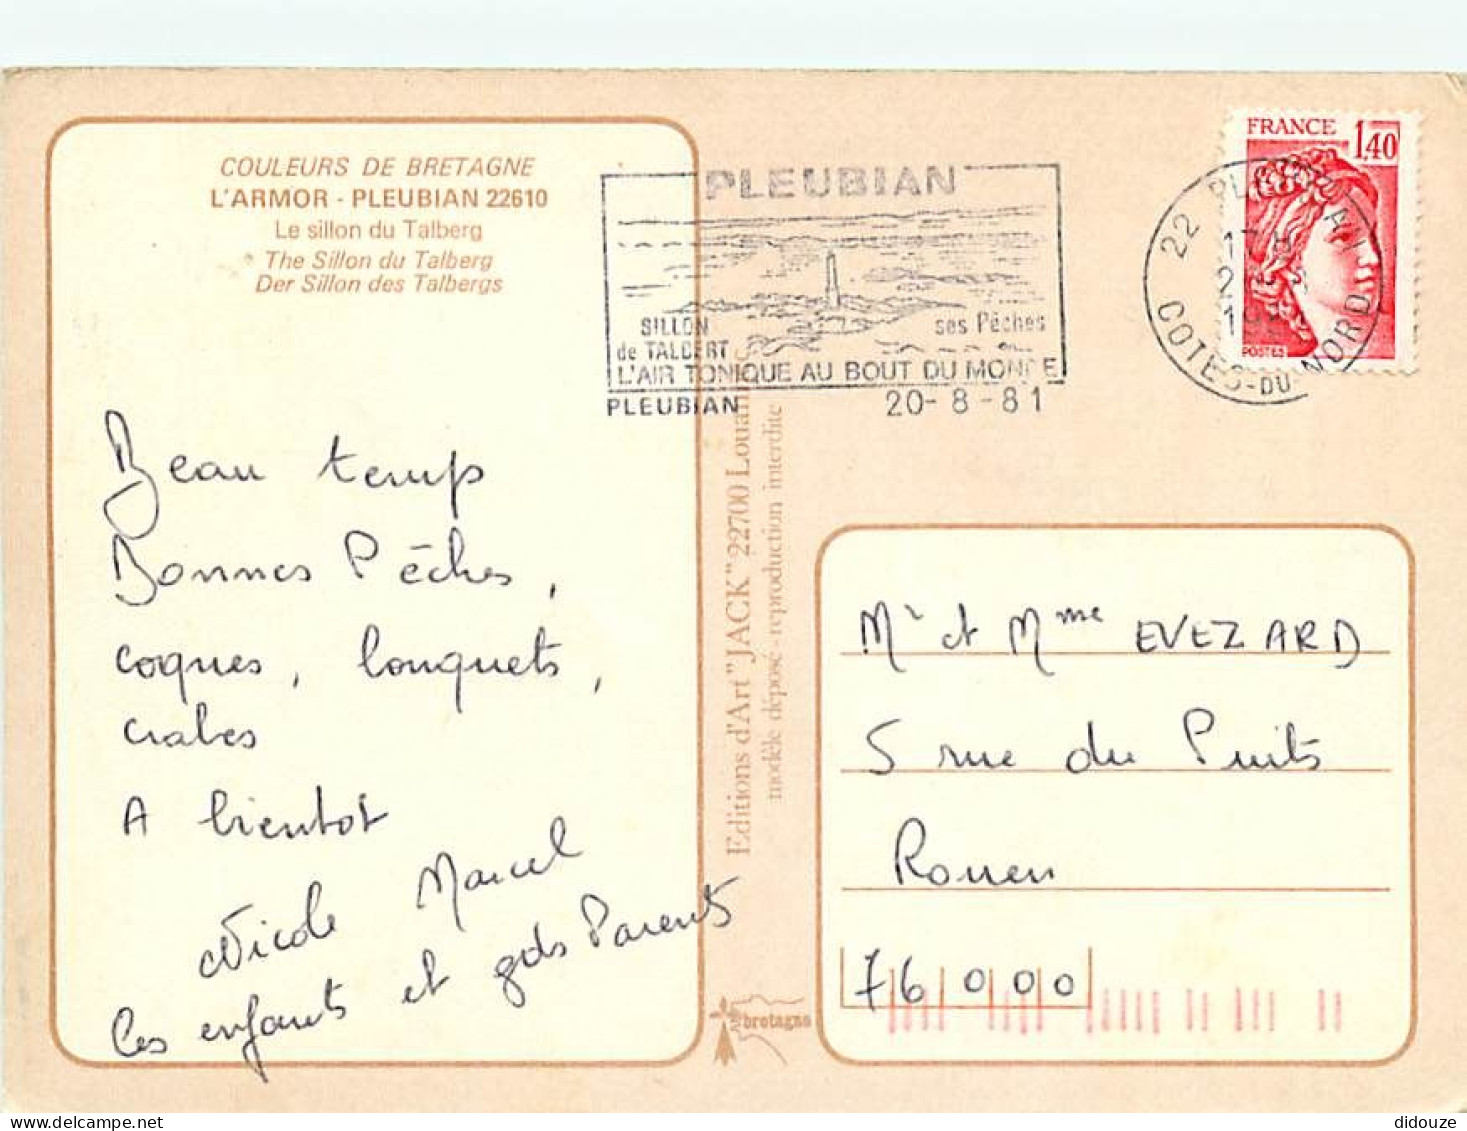 COULEURS DE BRETAGNE
L'ARMOR - PLEUBIAN 22610
Le sillon du Talberg
The Sillon du Talberg
Der Sillon des Talbergs
PLEUBIAN
SILLON
de TALBERT
ses Pêches
L'AIR TONIQUE AU BOUT DU MONDE
PLEUBIAN 20-8-81
FRANCE 1,40
POSTES
22
COTES-DU-NORD
Beau temps
Bonnes Pêches,
coques, bouquets,
crabes
A bientot
Nicole Marcel
les enfants et gds Parents
Editions d'Art "JACK" 22700
modèle déposé - reproduction interdite
bretagne
Mr et Mme EVEZARD
5 rue du Puits
Rouen
76 000
didouze